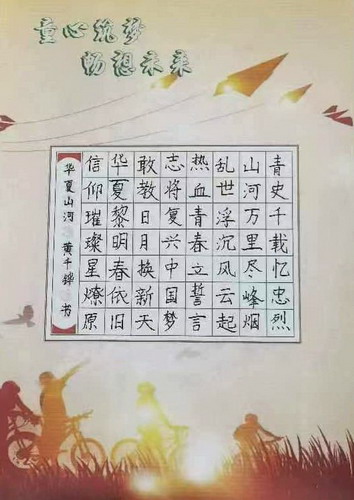 童心筑梦
畅想未来
青史千载忆忠烈
山河万里尽峰烟
乱世浮沉风云起
热血青春立誓言
志将复兴中国梦
敢教日月换新天
华夏黎明春依旧
信仰璀璨星燎原
华夏山河 黄千 书